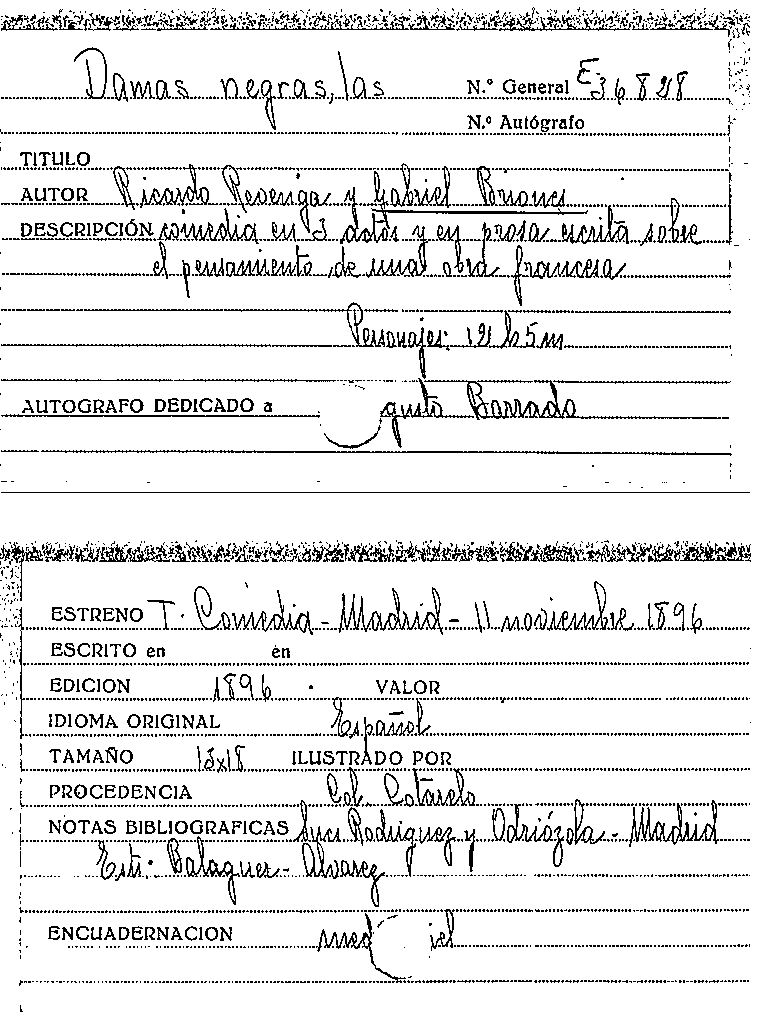 Damas negras, las
N.º General E-36828
N.º Autógrafo
TITULO
AUTOR Ricardo Revenga y Gabriel Briones
DESCRIPCIÓN comedia en 3 actos y en prosa escrita sobre
el pensamiento de una obra francesa
Personajes: 12 h 5 m
AUTOGRAFO DEDICADO a gusto Barrado
ESTRENO T. Comedia - Madrid - 11 noviembre 1896
ESCRITO en en
EDICION 1896 . VALOR
IDIOMA ORIGINAL Español
TAMAÑO 13x18 ILUSTRADO POR
PROCEDENCIA Col. Cotarelo
NOTAS BIBLIOGRAFICAS Suc. Rodriguez y Odriózola - Madrid
Est: Balaguer - Alvarez
ENCUADERNACION med iel